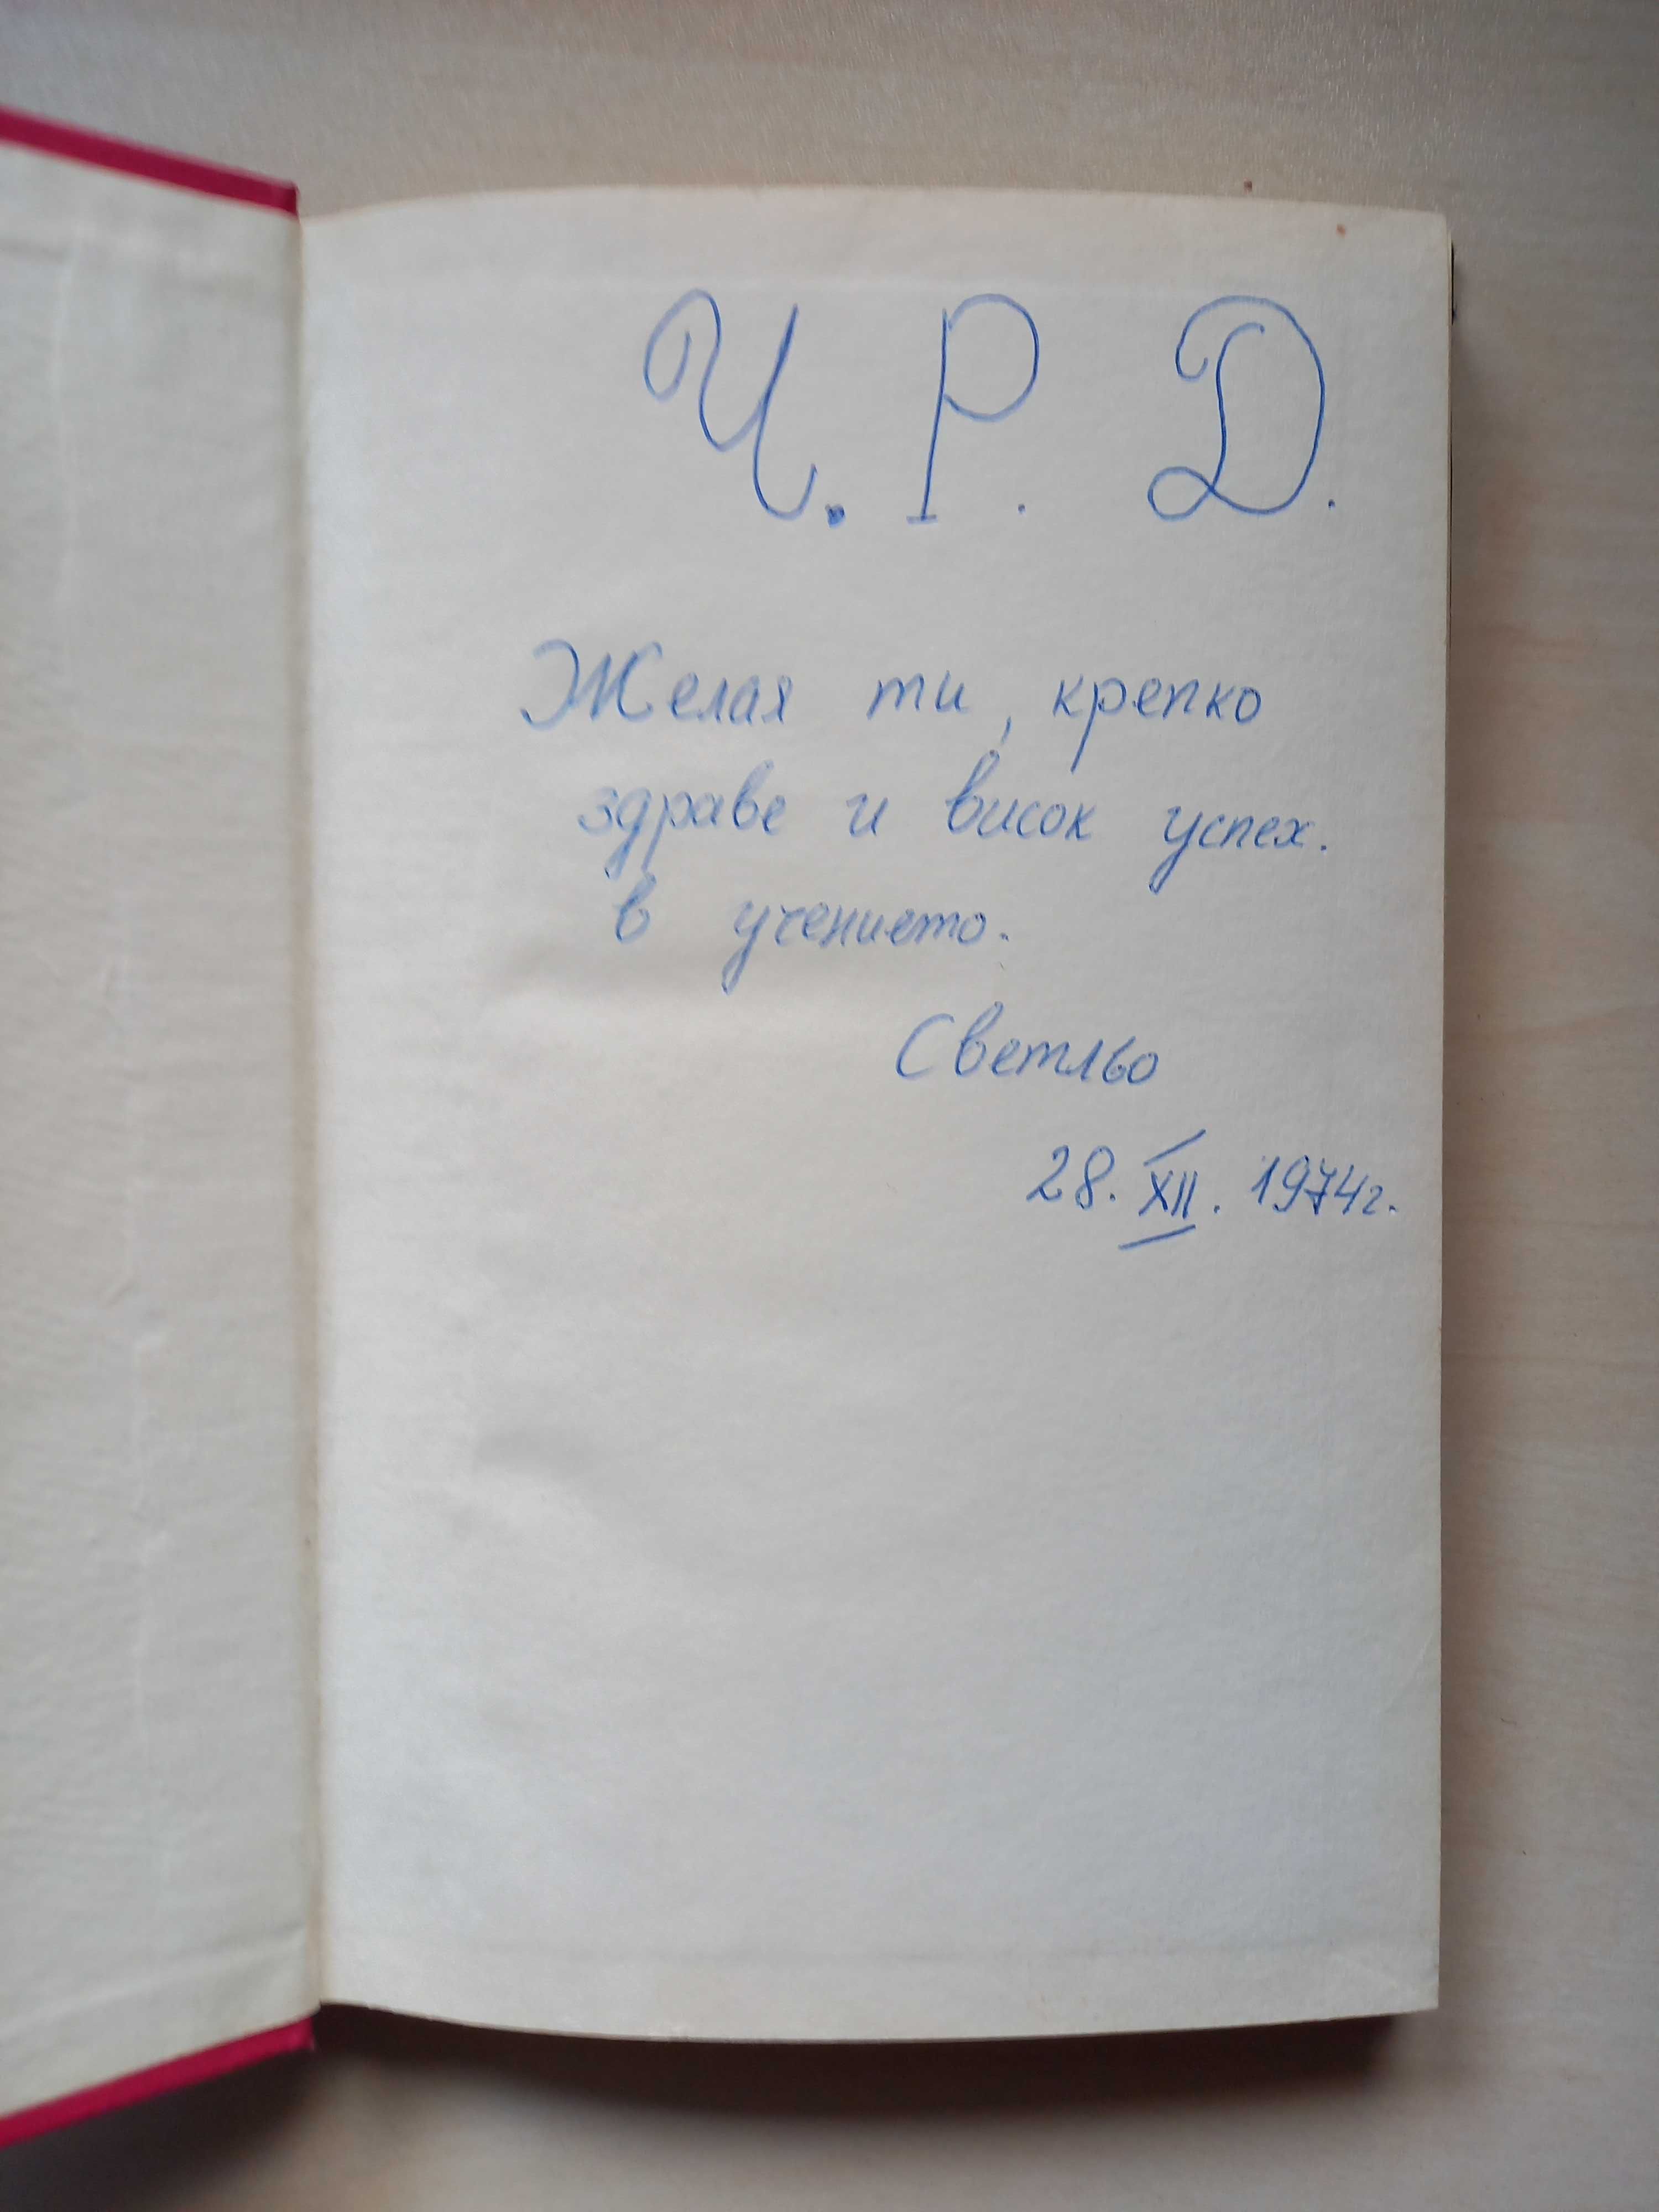 Ч. Р. Д.
Желая ти, крепко
здраве и висок успех.
в учението.
Светльо
28. XII. 1974г.